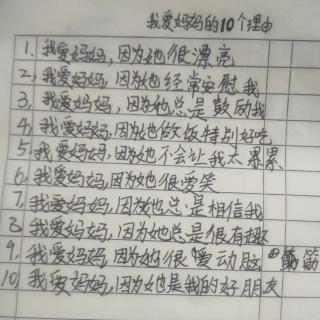 我爱妈妈的10个理由
1、我爱妈妈,因为她很漂亮
2、我爱妈妈,因为她经常安慰我
3、我爱妈妈,因为她总是鼓励我
4、我爱妈妈,因为她做饭特别好吃
5、我爱妈妈,因为她不会让我太累
6、我爱妈妈,因为她很爱笑
7、我爱妈妈,因为她总是相信我
8、我爱妈妈,因为她总是很有趣
9、我爱妈妈,因为她很爱动脑筋
10、我爱妈妈,因为她是我的好朋友